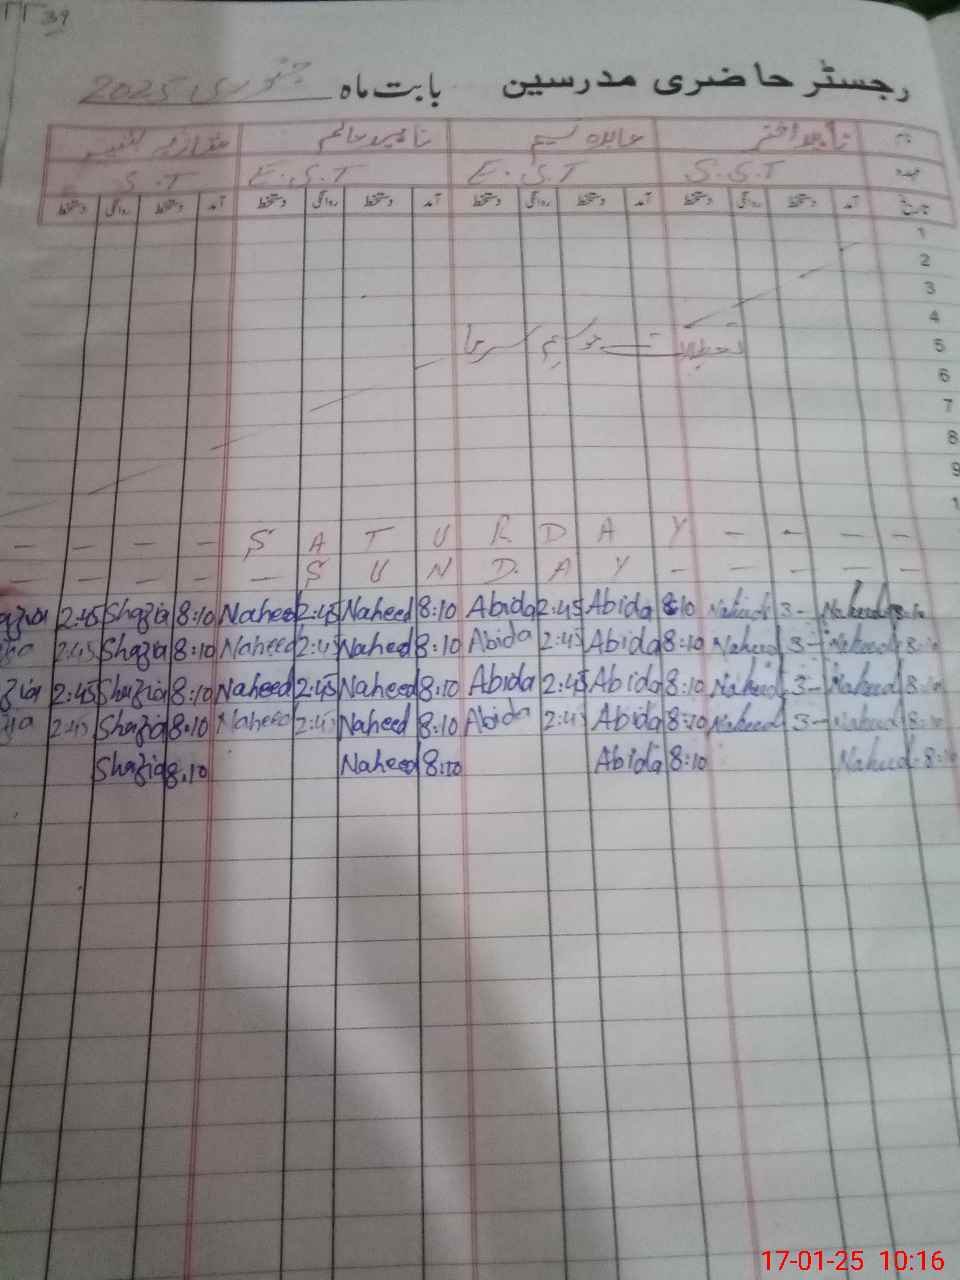 39
رجسٹر حاضری مدرسین بابت ماہ جنوری 2025
نام ناہید اختر عابدہ نسیم ناہید عالم
عہدہ S.S.T E.S.T E.S.T S.T
تاریخ آمد دستخط روانگی دستخط آمد دستخط روانگی دستخط آمد دستخط روانگی دستخط آمد دستخط روانگی دستخط
1
2
3
4
تعطیلات موسم سرما
5
6
7
8
9
1
- - - - S A T U R D A Y - - -
- - - - - S U N D. A Y - - - -
2:45 Shazia 8:10 Naheed 2:45 Naheed 8:10 Abida 2:45 Abida 8:10 Naheed 3- Naheed 8:10
2:45 Shazia 8:10 Naheed 2:45 Naheed 8:10 Abida 2:45 Abida 8:10 Naheed 3- Naheed 8:10
2:45 Shazia 8:10 Naheed 2:45 Naheed 8:10 Abida 2:45 Abida 8:10 Naheed 3- Naheed 8:10
2:45 Shazia 8:10 Naheed 2:45 Naheed 8:10 Abida 2:45 Abida 8:10 Naheed 3- Naheed 8:10
Shazia 8:10 Naheed 8:10 Abida 8:10 Naheed 8:10
17-01-25 10:16